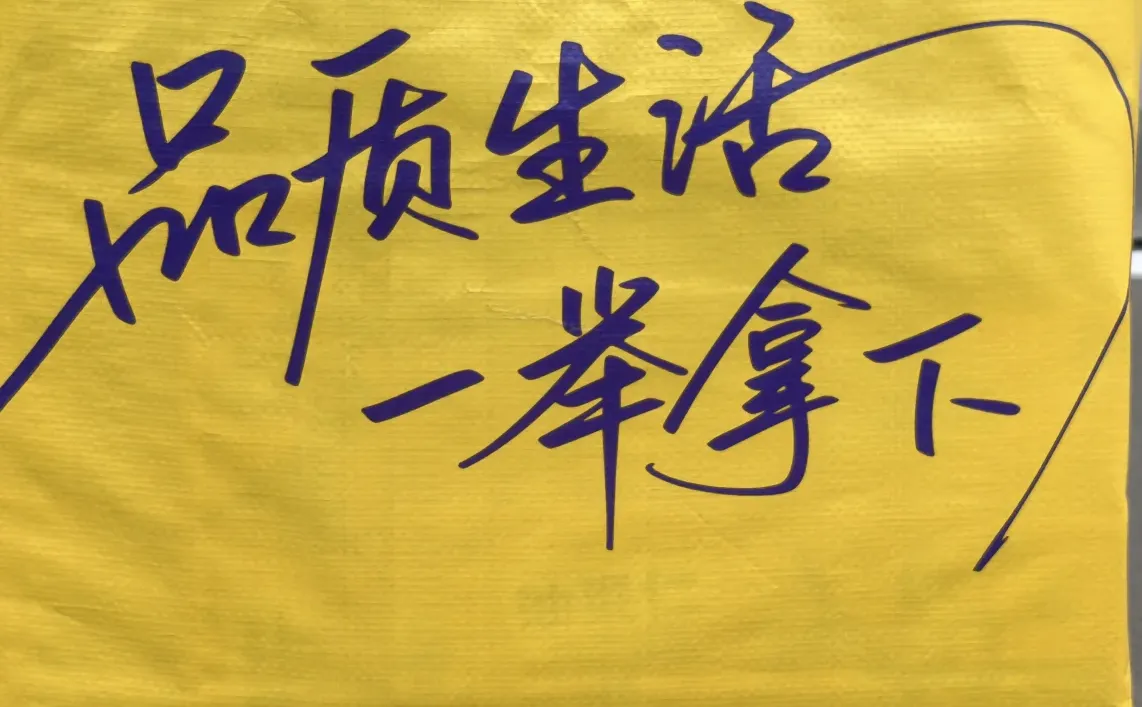 品质生活
一举拿下